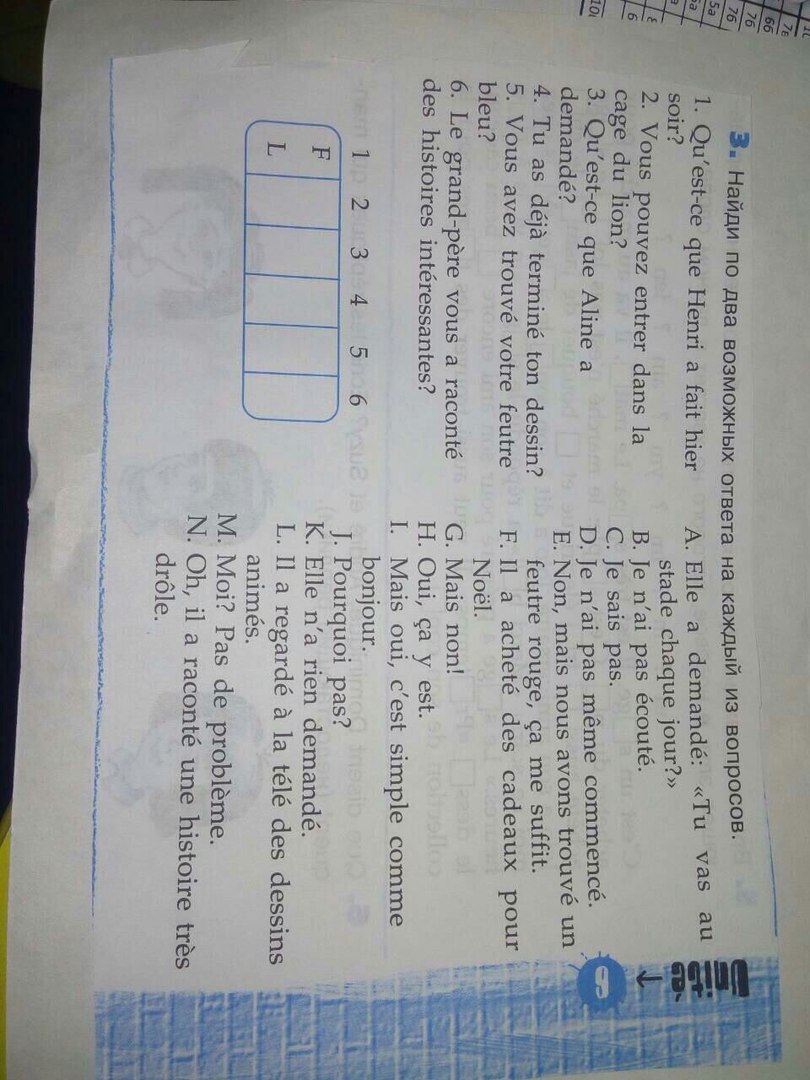 3. Найди по два возможных ответа на каждый из вопросов.
1. Qu'est-ce que Henri a fait hier
soir?
2. Vous pouvez entrer dans la
cage du lion?
3. Qu'est-ce que Aline a
demandé?
4. Tu as déjà terminé ton dessin?
5. Vous avez trouvé votre feutre
bleu?
6. Le grand-père vous a raconté
des histoires intéressantes?
1 2 3 4 5 6
F
L
A. Elle a demandé: «Tu vas au
stade chaque jour?»
B. Je n'ai pas écouté.
C. Je sais pas.
D. Je n'ai pas même commencé.
E. Non, mais nous avons trouvé un
feutre rouge, ça me suffit.
F. Il a acheté des cadeaux pour
Noël.
G. Mais non!
H. Oui, ça y est.
I. Mais oui, c'est simple comme
bonjour.
J. Pourquoi pas?
K. Elle n'a rien demandé.
L. Il a regardé à la télé des dessins
animés.
M. Moi? Pas de problème.
N. Oh, il a raconté une histoire très
drôle.
76
76
5a
6